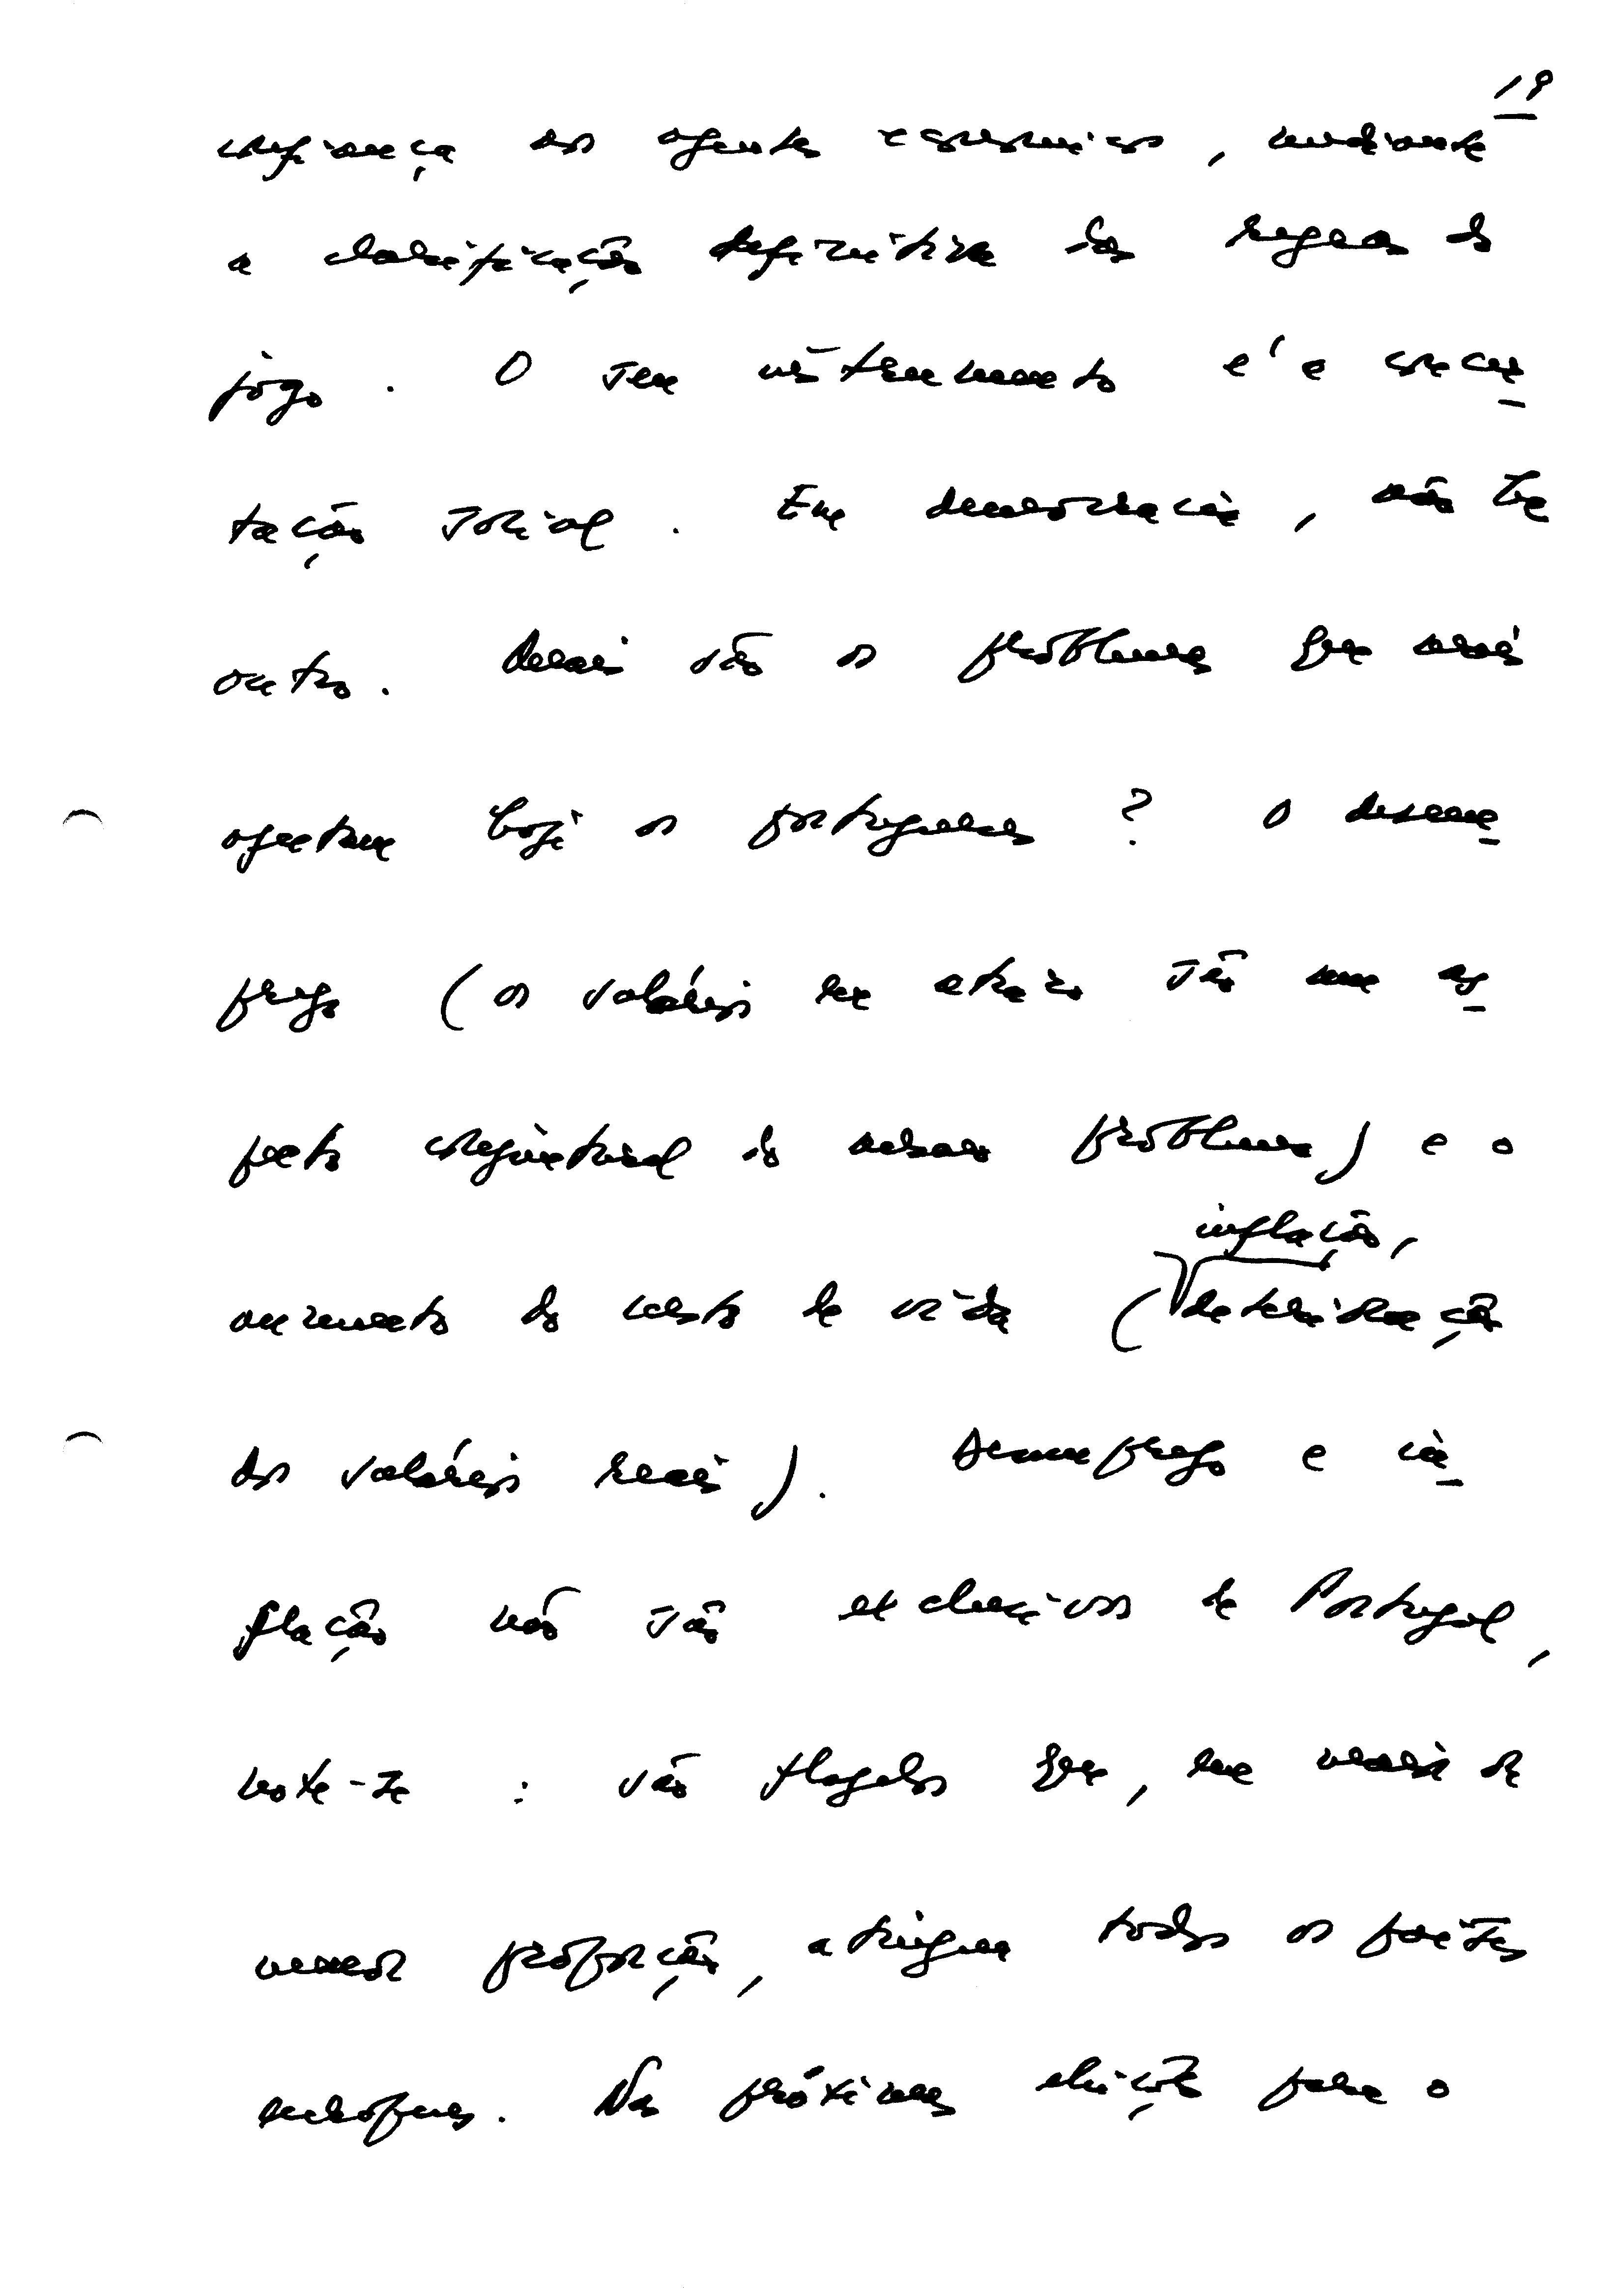 19
confiança dos agentes económicos, mediante
a clarificação definitiva das regras do
jogo. O seu instrumento é a concer
tação social. Em democracia, não há
outro. Quais são os problemas que mais
afectam hoje os portugueses? O desem
prego (os salários em atraso são um as
pecto conjuntural do mesmo problema) e o
inflação,
aumento do custo de vida (deterioração
dos salários reais). Desemprego e in
flação não são exclusivos de Portugal,
note-se: são flagelos que, em maior ou
menor proporção, atingem todos os países
europeus. Nas próximas eleições para o